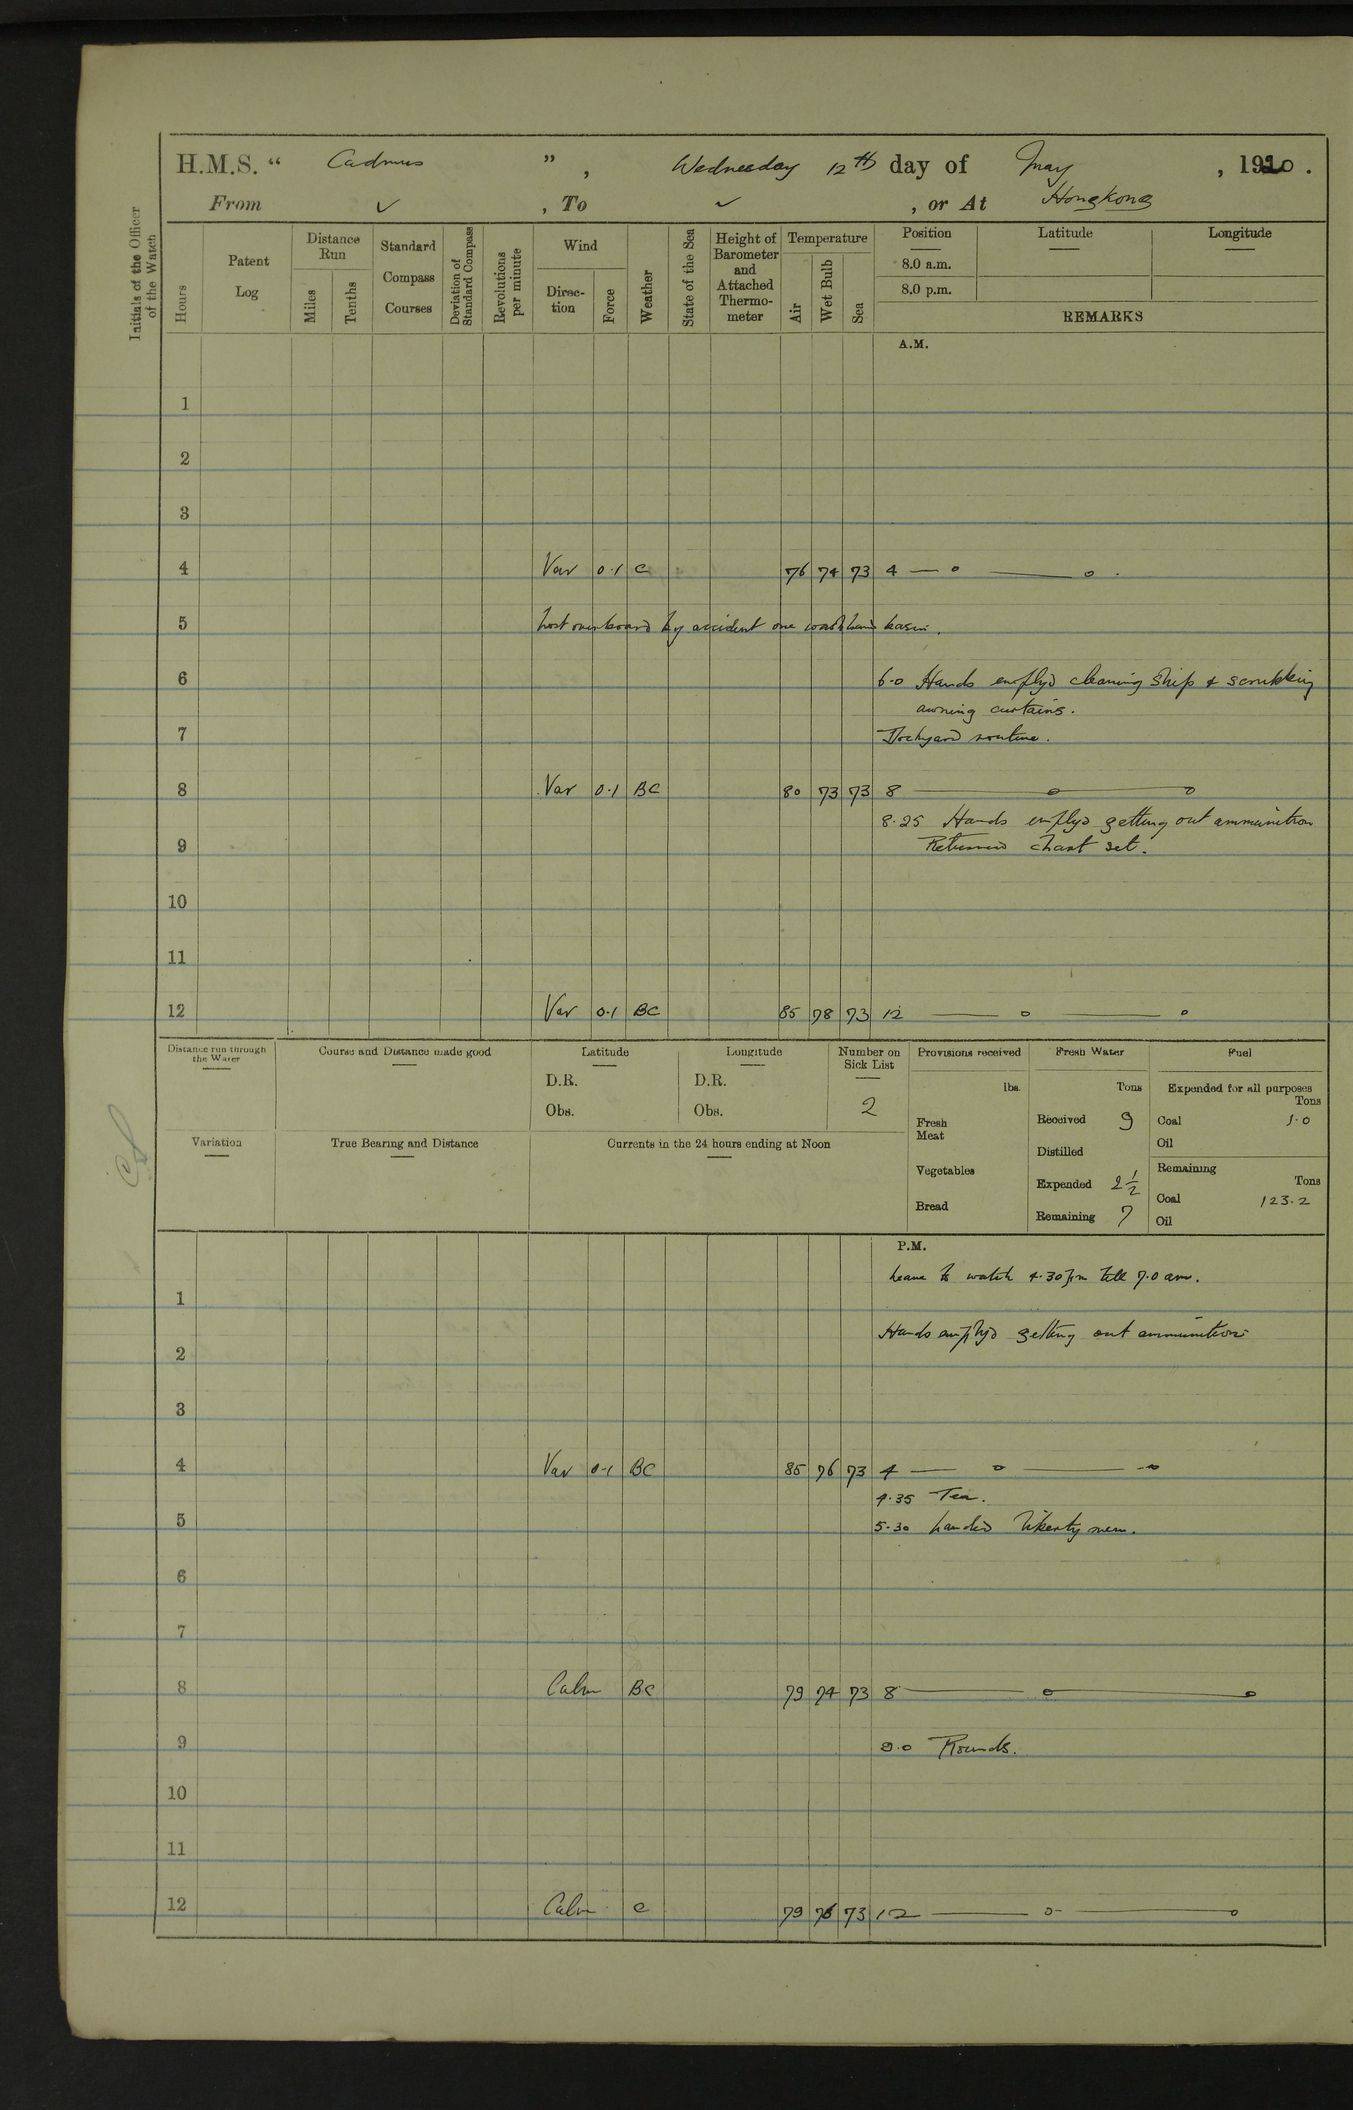 H.M.S. “ Cadmus ” , Wednesday 12th day of May , 1920 .
From ✓ , To ✓ , or At Hongkong
Initials of the Officer of the Watch
Hours
Patent Log
Distance Run
Miles
Tenths
Standard Compass Courses
Deviation of Standard Compass
Revolutions per minute
Wind
Direc-tion
Force
Weather
State of the Sea
Height of Barometer and Attached Thermo-meter
Temperature
Air
Wet Bulb
Sea
Position
Latitude
Longitude
8.0 a.m.
8.0 p.m.
REMARKS
A.M.
1
2
3
4 Var 0·1 C 76 74 73 4 — o — o
5 Lost overboard by accident one wash hand basin.
6 6·0 Hands emply'd cleaning ship & scrubbing
awning curtains.
7 Dockyard routine.
8 Var 0·1 BC 80 73 73 8 — o — o
8·25 Hands emply'd getting out ammunition
9 Returned chart set.
10
11
12 Var 0·1 BC 85 78 73 12 — o — o
Distance run through the Water
Course and Distance made good
Latitude
D.R.
Obs.
Longitude
D.R.
Obs.
Number on Sick List
2
Provisions received
lbs.
Fresh Meat
Vegetables
Bread
Fresh Water
Tons
Received 9
Distilled
Expended 2½
Remaining 7
Fuel
Expended for all purposes
Tons
Coal 1·0
Oil
Remaining
Tons
Coal 123·2
Oil
Variation
True Bearing and Distance
Currents in the 24 hours ending at Noon
P.M.
Leave to watch 4·30 pm till 7·0 am.
1
Hands emply'd getting out ammunition
2
3
4 Var 0·1 BC 85 76 73 4 — o — o
4·35 Tea.
5 5·30 Landed liberty men.
6
7
8 Calm BC 79 74 73 8 — o — o
9 9·0 Rounds.
10
11
12 Calm C 79 76 73 12 — o — o